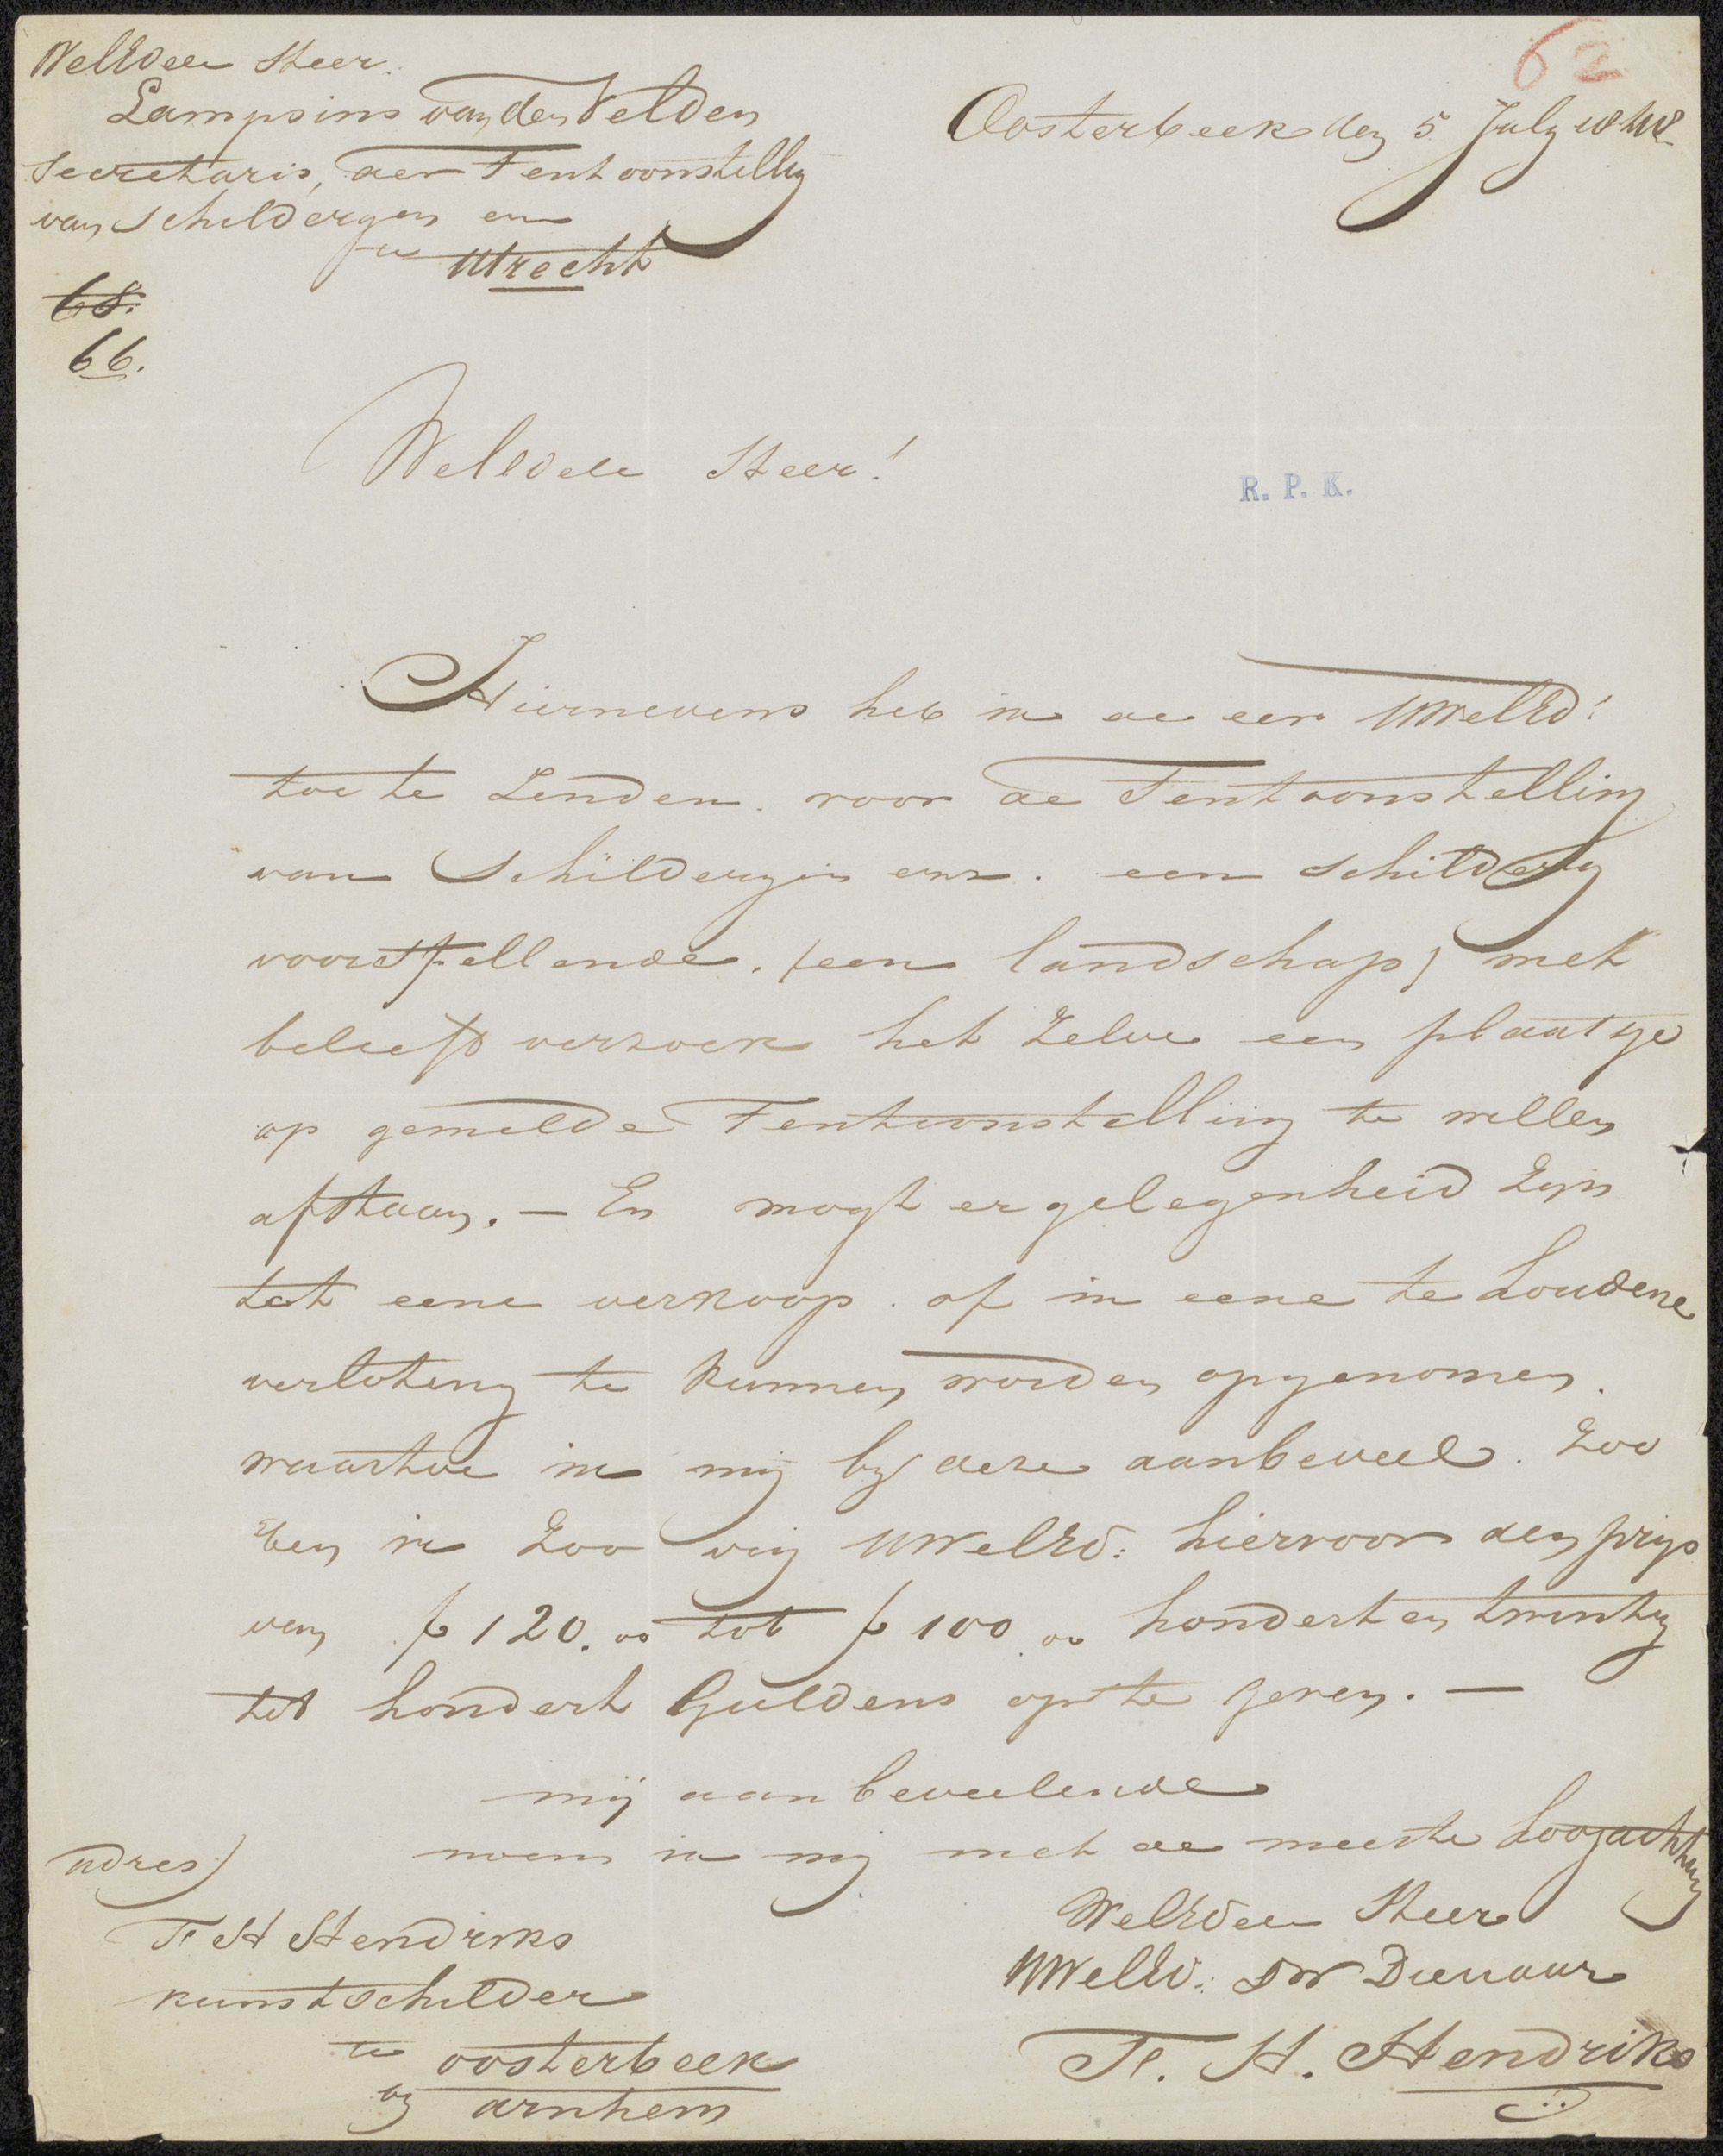 62
WelEdele Heer.
Lampsins van den Velden
Secretaris, der Tentoonstelling
van Schilderyen en
te Utrecht
68.
66.
Oosterbeek den 5 July
WelEdele Heer!
R. P. K.
Hiernevens heb ik de eer UWelEd:
toe te Zenden. voor de Tentoonstelling
van Schilderyen enz. een Schildery
voorstellende. (een landschap) met
beleefd verzoek het Zelve een plaatsje
op gemelde Tentoonstelling te willen
afstaan. — En mogt er gelegenheid Zijn
tot eene verkoop. of in eene te houdene
verloting te kunnen worden opgenomen.
waartoe ik mij by deze aanbeveel. Zoo
ben ik Zoo vrij UWelEd: hiervoor den prys
van f 120.00 tot f 100.00 hondert en twintig
tot hondert Guldens op te geven. —
mij aanbeveelende
noem ik mij met de meeste hoogachting
WelEdele Heer
UWelEd: DW Dienaar
F. H. Hendriks
adres)
F H Hendriks
kunstschilder
te oosterbeek
by arnhem